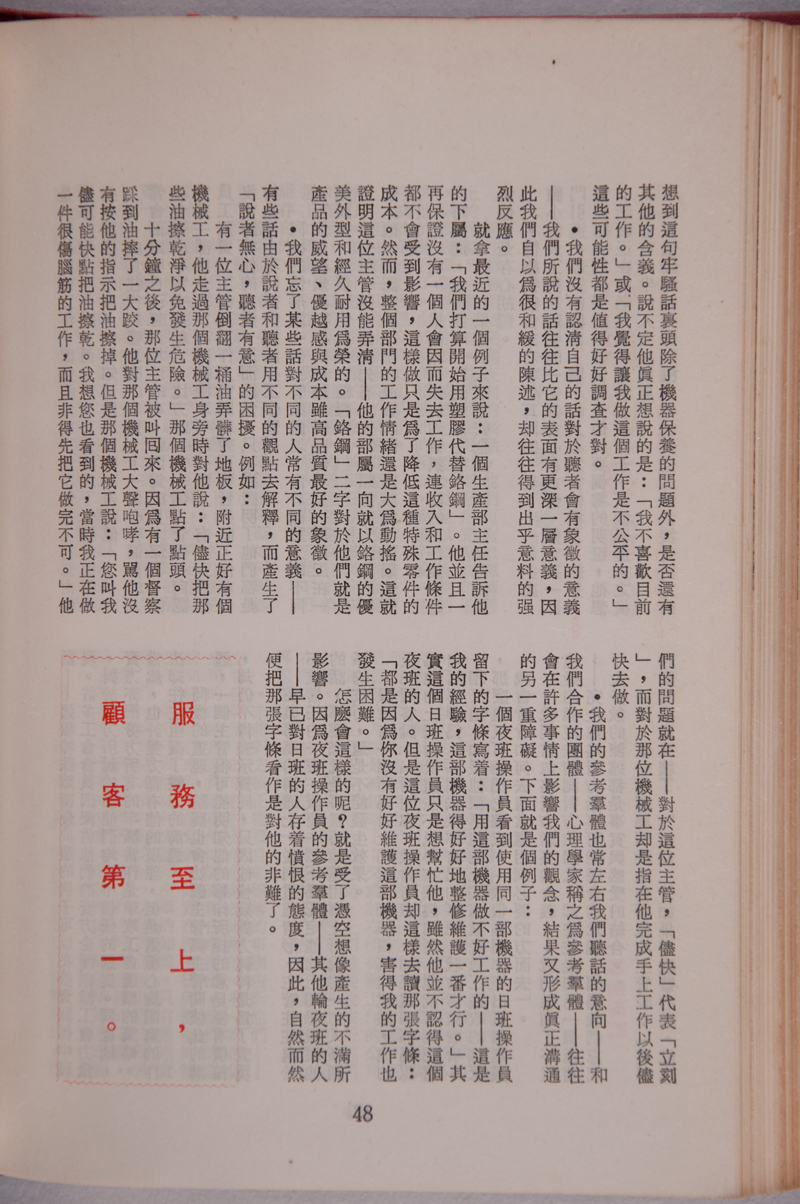 想到這句牢騷話裏頭除了機器保養的問題外，是否還有
其他的含義。說不定他眞正想說的是：「我不喜歡目前
的工作。」或「我覺得讓我做這個工作是不公平的。」
這些可能性都是値得好好調查才對。
•我們沒有認淸自己的話對於聽者會有象徵的意義
——我們所說的話往往比它的表面有更深一層意義，因
此我們自以爲很和緩的陳述，却往往得到出乎意料的强
烈反應。
就拿最近的一個例子來說：一個生產部主任告訴他
的下屬：「我們打算開始用塑膠代替鉻鋼」。他並且一
再保證沒有一個人會因而失去工作，連收入和工作條件
都不會受到影響，這樣做只是爲了降低這種特殊零件的
成本。然而，整個部門的工作情緖還是大爲動搖。這就
證明這位主管沒能弄淸——他的部屬一向就以鉻鋼的優
美外型和經久耐用爲榮的。「鉻鋼」二字對於他們就是
產品的威望、優越感與成本雖高品質最好的象徵。
•我們忘了某些話對不同的人常有不同的意義——
有些話由於說者和聽者用不同的觀點去解釋，而產生了
「說者無心，聽者有意」的困擾。例如：
有一位主管倒翻一桶油弄髒了地板，附近正好有個
機械工，他走過那個機械工身旁時對他說：「儘快把那
些油擦乾淨以免發生危險。」那個機械工點了點頭。
十分鐘之後，那位主管被叫囘來。因爲有一個督察
踩到油摔了一大跤。他對那個機械工大聲咆哮，罵他沒
有按他的指示把油擦掉。但是那個機械工說：「您叫我
儘可能快點把油擦乾。我想您也看到的，當時我正在做
一件很傷腦筋的工作，而且非得先把它做完不可。」他
們的問題就在——對於這位主管，「儘快」代表「立刻
」，而對於那位機械工却是指在他完成手上工作以後儘
快去做。
•我們的參考羣體也常左右我們聽話的意向——和
我們合作的團體——心理學家稱之爲參考羣體——往往
會在許多事情上影響我們的觀念，結果又形成眞正溝通
的另一重障礙。下面就是個例子：
一個夜班操作員看到使用同一部機器的日班操作員
留下的字條寫着：「用這部機器做不好工作的——這是
我的經驗，這部機器得好好地整修維護一番才行。」其
實這個日班操作員只是想幫忙他，雖然他並不認得這個
夜班的人。但是這位夜班操作員却這樣去讀那張字條：
「都是因爲你沒有好好維護這部機器，害得我的工作也
發生困難。」
怎麼會這樣的呢？就是受了憑空想像產生的不滿所
影響。因爲夜班操作員的參考羣體——其他輪夜班的人
——早已對日班的人存着憤恨的態度，因此，自然而然
便把那張字條看作是對他的非難了。
服務至上，
顧客第一。
48